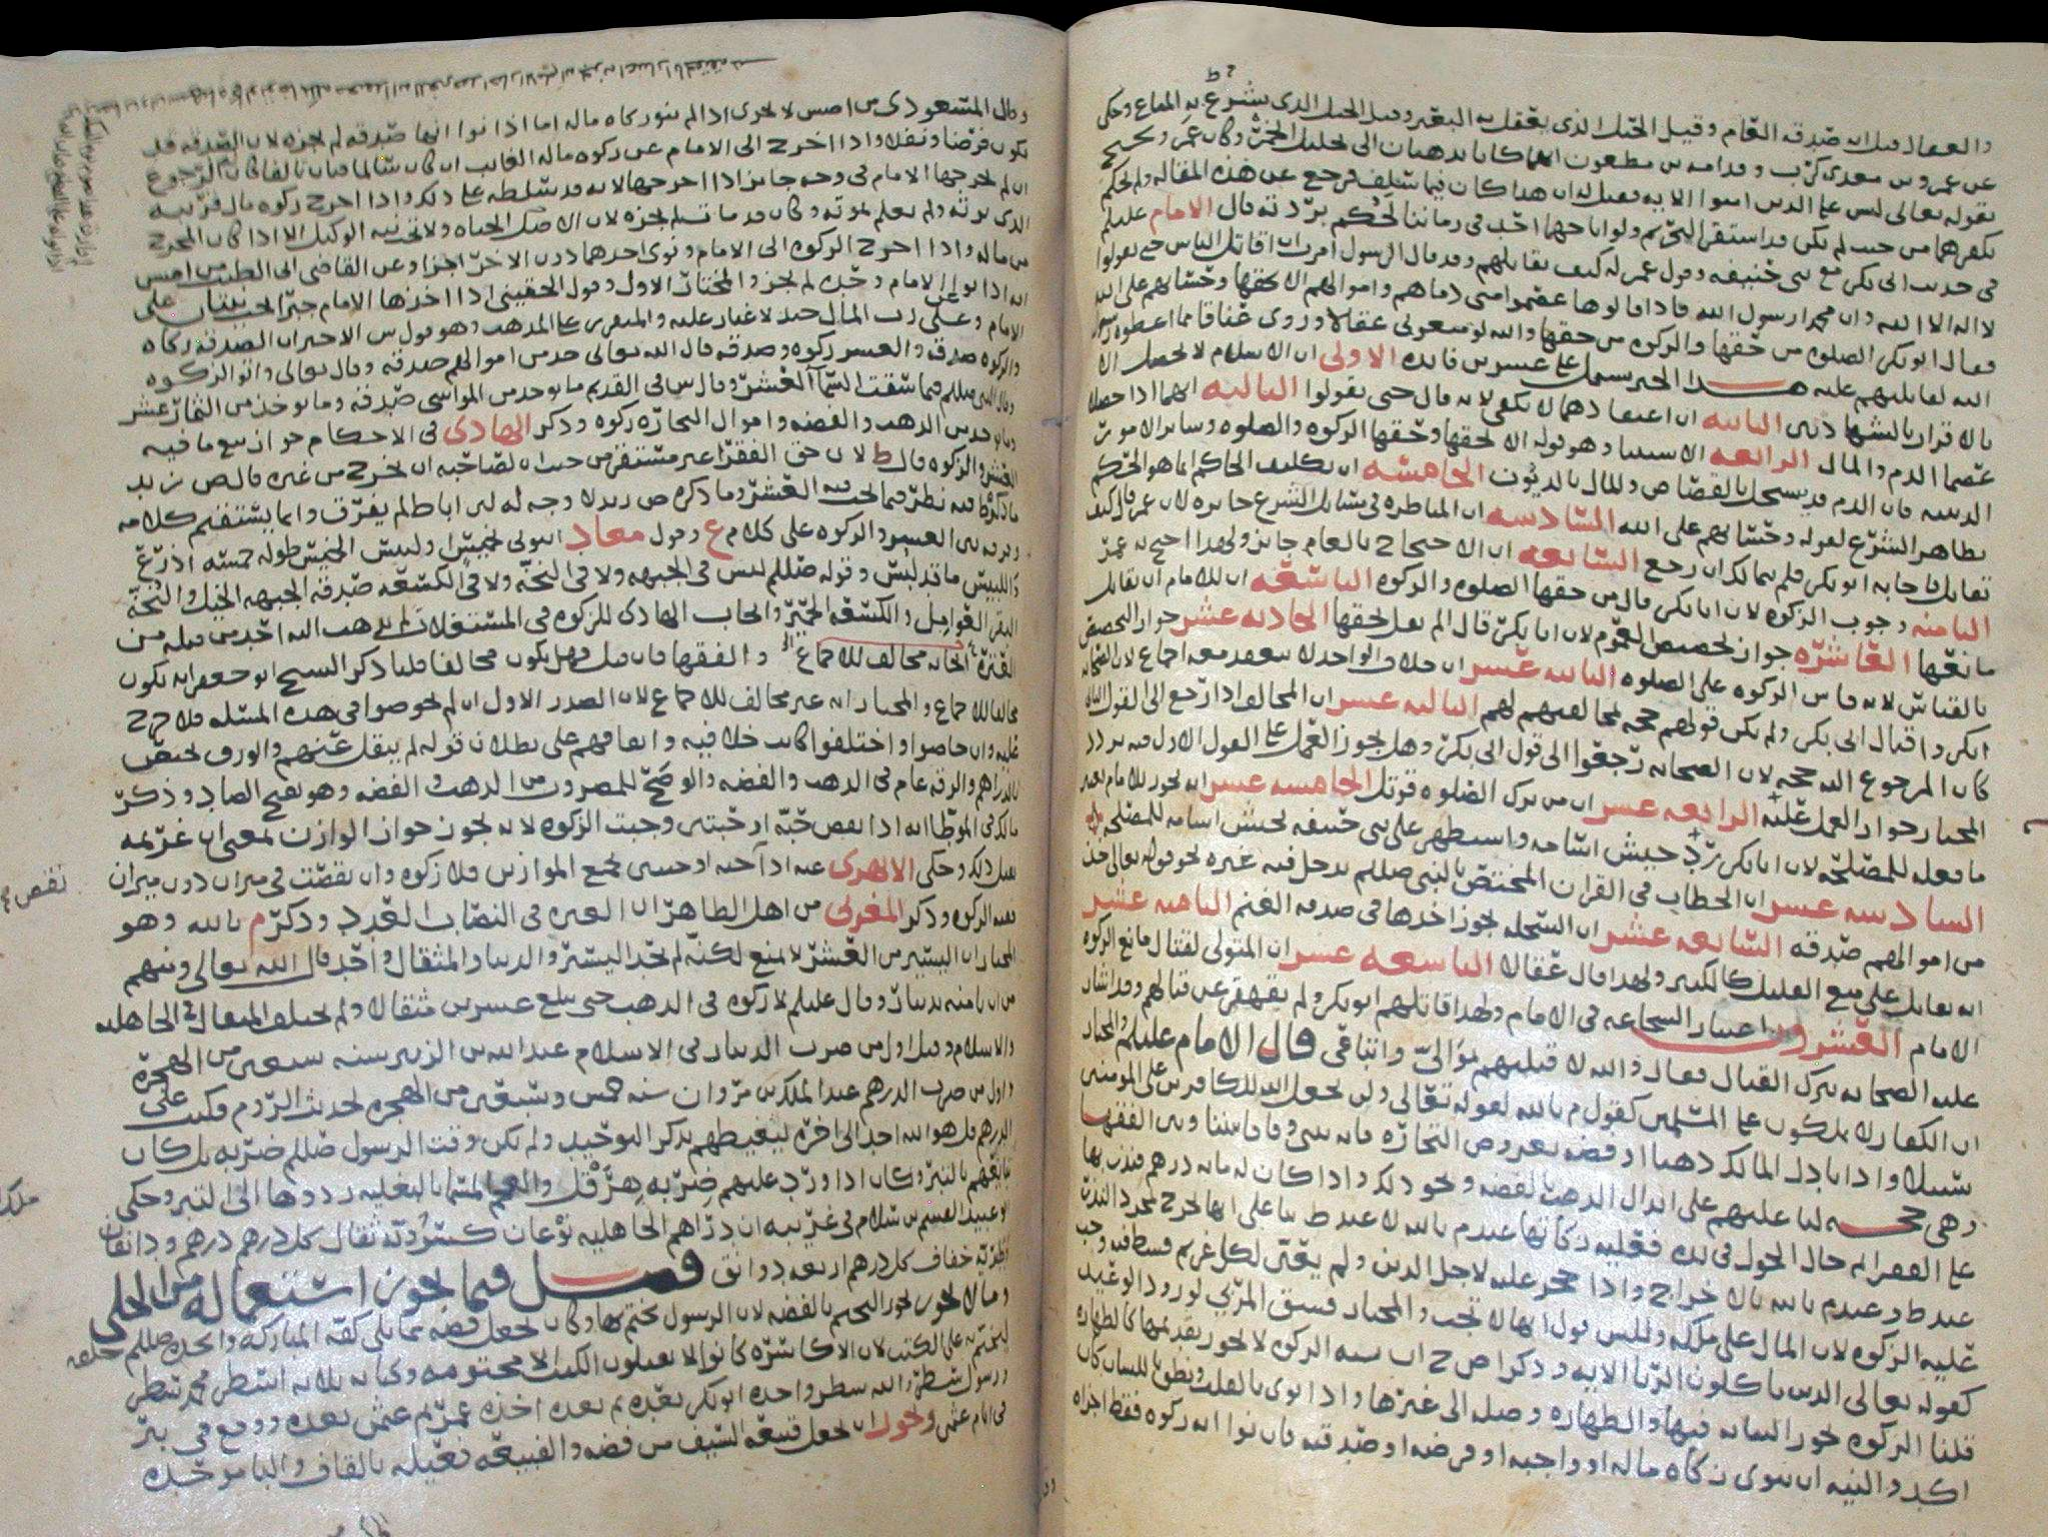 والعقال قيل انه صدقة العام وقيل الحبل الذي يعقل به البعير وقيل الحبل الذي يشرع به المتاع وحكى
عن عمرو بن معدي كرب وقدامه بن مظعون انهما كانا يذهبان الى تحليل الخمر وكان عمرو يحتج
بقوله تعالى ليس على الذين امنوا الايه فقيل له ان هذا كان فيما سلف فرجع عن هذه المقاله ولم يحكم
بكفرهما من حيث لم يكن قد استقر التحريم ولو اباحهما احد في زماننا لحكم بردته قال الامام عليلم
في حديث ابي بكر مع بني حنيفه وقول عمر له كيف تقاتلهم وقد قال الرسول امرت ان اقاتل الناس حتى يقولوا
لا اله الا الله وان محمدا رسول الله فاذا قالوها عصموا مني دماهم واموالهم الا بحقها وحسابهم على الله
فقال ابو بكر الصلوه من حقها والزكوه من حقها والله لو منعوني عقالا وروي عناقا مما اعطوه رسول
الله لقاتلتهم عليه هذا الخبر يشتمل على عشرين فائده الاولى ان الاسلام لا يحصل الا
بالاقرار بالشهادتين الثانيه ان اعتقادهما لا يكفي لانه قال حتى يقولوا الثالثه انهما اذا حصلا
عصما الدم والمال الرابعه الاستثنا وهو قوله الا بحقها وحقها الزكوه والصلوه وسائر الامور
الدينيه فان الدم قد يستحل بالقصاص والمال بالديون الخامسه ان تكليف الحاكم انما هو الحكم
بظاهر الشرع لقوله وحسابهم على الله السادسه ان المناظره في مسائل الشرع جائزه لان عمر قال كيف
تقاتل فاجابه ابو بكر فلم يتمالك ان رجع السابعه ان الاحتجاج بالعام جائز ولهذا احتج به عمر
الثامنه وجوب الزكوه لان ابا بكر قال من حقها الصلوه والزكوه التاسعه ان للامام ان يقاتل
مانعها العاشره جواز تخصيص العموم لان ابا بكر قال الم يقل بحقها الحاديه عشر جواز التخصيص
بالقياس لانه قاس الزكوه على الصلوه الثانيه عشر ان خلاف الواحد لا ينعقد معه اجماع لان الصحابه
انكروا قتال ابي بكر ولم يكن قولهم حجه لمخالفتهم لهم الثالثه عشر ان المخالف اذا رجع الى القول الثاني
كان المرجوع اليه حجه لان الصحابه رجعوا الى قول ابي بكر وهل يجوز العمل على القول الاول فيه تردد
المختار جواز العمل عليه الرابعه عشر ان من ترك الصلوه قوتل الخامسه عشر انه يجوز للامام نقض
ما فعله للمصلحه لان ابا بكر رد جيش اسامه واستظهر على بني حنيفه بجيش اسامه للمصلحه
السادسه عشر ان الخطاب في القران المختص بالنبي صللم يدخل فيه غيره نحو قوله تعالى خذ
من اموالهم صدقه السابعه عشر ان السخله يجوز اخذها في صدقه الغنم الثامنه عشر
انه يقاتل على منع القليل كالكثير ولهذا قال عقالا التاسعه عشر ان المتولي لقتال مانع الزكوه
الامام العشرون اعتبار الشجاعه في الامام ولهذا قاتلهم ابو بكر ولم يقهقر عن قتالهم وقد اشار
عليه الصحابه بترك القتال فقال والله لا قتلتهم بموالي وابناي قال الامام عليلم والمختار
ان الكفار لا يملكون على المسلمين كقول م بالله لقوله تعالى ولن يجعل الله للكافرين على المومنين
سبيلا واذا بادل المالك ذهبا او فضه بعروض التجاره فانه يبنى وفاقا بيننا وبين الفقها
وهي حجه لنا عليهم على ابدال الذهب بالفضه ونحو ذلك واذا كان له مايه درهم فنذر بها
على الفقرا ثم حال الحول في يده فعليه زكاتها عند م بالله لا عند ط بنا على انها تخرج بمجرد النذر
عند ط وعند م بالله بالاخراج واذا حجر عليه لاجل الدين ولم يعين لكل غريم قسطا فيه وجب
عليه الزكوه لان المال على ملكه وللش قول انها لا تجب والمختار فسق المربي لورود الوعيد
كقوله تعالى الذين ياكلون الربا الايه وذكر اص ح ان نية الزكوه لا يجوز تقديمها كالطهاره
قلنا الزكوه تجوز النيابه فيها والطهاره وصله الى غيرها واذا نوى بالقلب ونطق باللسان كان
اكد والنيه ان ينوي زكاه ماله او واجبه او فرضه او صدقته فان نوا انه زكوه فقط اجزاه
وقال المسعودي من اصش لا يجزي اذا لم ينو زكاه ماله اما اذا نوا انها صدقه لم يجزه لان الصدقه قد
تكون فرضا ونفلا واذا اخرج الى الامام عن زكوه ماله الغائب ان كان سالما فبان تالفا كان له الرجوع
ان لم يخرجها الامام في وجه جائز اذا اخرجها لانه قد سلطه على ذلك واذا اخرج زكوه مال قريبه
الذي يرثه ولم يعلم بموته وكان قد مات لم يجزه لان الاصل الحياه ولا تجزيه الوكيل الا اذا كان المخرج
من ماله واذا اخرج الزكوه الى الامام ونوى احدهما دون الاخر اجزا وعن القاضي ابي الطيب من اصش
انه اذا نوا الامام وحده لم يجز والمختار الاول وقول الحقيني اذا اخذها الامام جبرا احتسبتا على
الامام وعلى رب المال جيد لا غبار عليه والمتقرر على المذهب وهو قول ش الاخير ان الصدقه زكاه
والزكوه صدقه والعشر زكوه وصدقه قال الله تعالى خذ من اموالهم صدقه وقال تعالى واتوا الزكوه
وقال النبي صللم فيما سقت السما العشر وقال ش في القديم ما يوخذ من المواشي صدقه وما يوخذ من الثمار عشر
وما يوخذ من الذهب والفضه واموال التجاره زكوه وذكر الهادي في الاحكام جواز بيع ما فيه
العشر والزكوه قال ط لان حق الفقرا غير مستقر من حيث ان لصاحبه ان يخرج من غيره قال ص زيد
ما ذكره ط فيه نظر فيما يجب فيه العشر وما ذكره ص زيد لا وجه له لان اباط لم يفرق وانما يستقيم كلامه
وفرقه بين العشر والزكوه على كلام ع وقول معاذ ايتوني بخميس او لبيس الخميس طوله خمسه اذرع
واللبيس ما قد لبس وقوله صللم ليس في الجبهه ولا في النخه ولا في الكسعه صدقه الجبهه الخيل والنخه
البقر العوامل والكسعه الحمير وايجاب الهادي للزكوه في المستغلات لم يذهب اليه احد من قبله من
العتره انه مخالف للاجماع والفقها فان قيل فهل يكون مخالفا قلنا ذكر الشيخ ابو جعفر انه يكون
مخالفا للاجماع والمختار انه غير مخالف للاجماع لان الصدر الاول ان لم يخوضوا في هذه المسئله فلا حرج
عليه وان خاضوا واختلفوا كانت خلافيه واتفاقهم على بطلان قوله لم ينقل عنهم والورق يختص
بالدراهم والرقه عام في الذهب والفضه والوضح للمضروب من الذهب والفضه وهو بفتح الضاد وذكر
مالك في الموطا انه اذا نقص حبه او حبتين وجبت الزكوه لانه يجوز جواز الوازن بمعنى ان غريمه
يقبل ذلك وحكى الابهري عنه اذا حبه او حبتين بجميع الموازين فلا زكوه وان نقصت في ميزان دون ميزان
ففيه الزكوه وذكر المغربي من اهل الظاهر ان العبره في النصاب العدد وذكر م بالله وهو
المختار ان اليسير من الغش لا يمنع لكنه لم يحد اليسير والدينار المثقال واحد قال الله تعالى ومنهم
من ان تامنه بدينار وقال عليلم لا زكوه في الذهب حتى يبلغ عشرين مثقالا ولم يختلف المثقال في الجاهليه
والاسلام وقيل اول من ضرب الدينار في الاسلام عبد الله بن الزبير سنه سبعين من الهجره
واول من ضرب الدرهم عبد الملك بن مروان سنه خمس وسبعين من الهجره لحدث الروم فكتب على
الدرهم قل هو الله احد الى اخره ليغيظهم بذكر التوحيد ولم يكن وقت الرسول صللم ضربه بل كان
تبايعهم بالتبر وكان اذا ورد عليهم ضربه هرقل والعجم المسما بالبغليه ردوها الى التبر وحكى
ابو عبيد القسم بن سلام في غريبه ان دراهم الجاهليه نوعان كسرويه ثقال كل درهم درهم ودانقان
وطبريه خفاف كل درهم اربعه دوانق فصل فيما يجوز استعماله من الحلي
وما لا يجوز يجوز التختم بالفضه لان الرسول تختم بها وكان يجعل فصه مما يلي كفه المباركه واتخذه صللم
ليختم به على الكتب لان الاكاسره كانوا لا يقبلون الكتب الا مختومه وكتابه ثلاثه اسطر محمد سطر
ورسول سطر والله سطر واخذه ابو بكر بعده ثم بعده اخذه عمر ثم عثمن بعده ووقع في بئر
في ايام عثمن ويجوز ان يجعل قبيعه السيف من فضه والقبيعه فعيله بالقاف والبا موحده
نقص